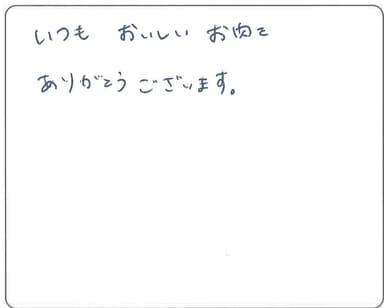 いつも おいしい お肉を
ありがとう ございます。